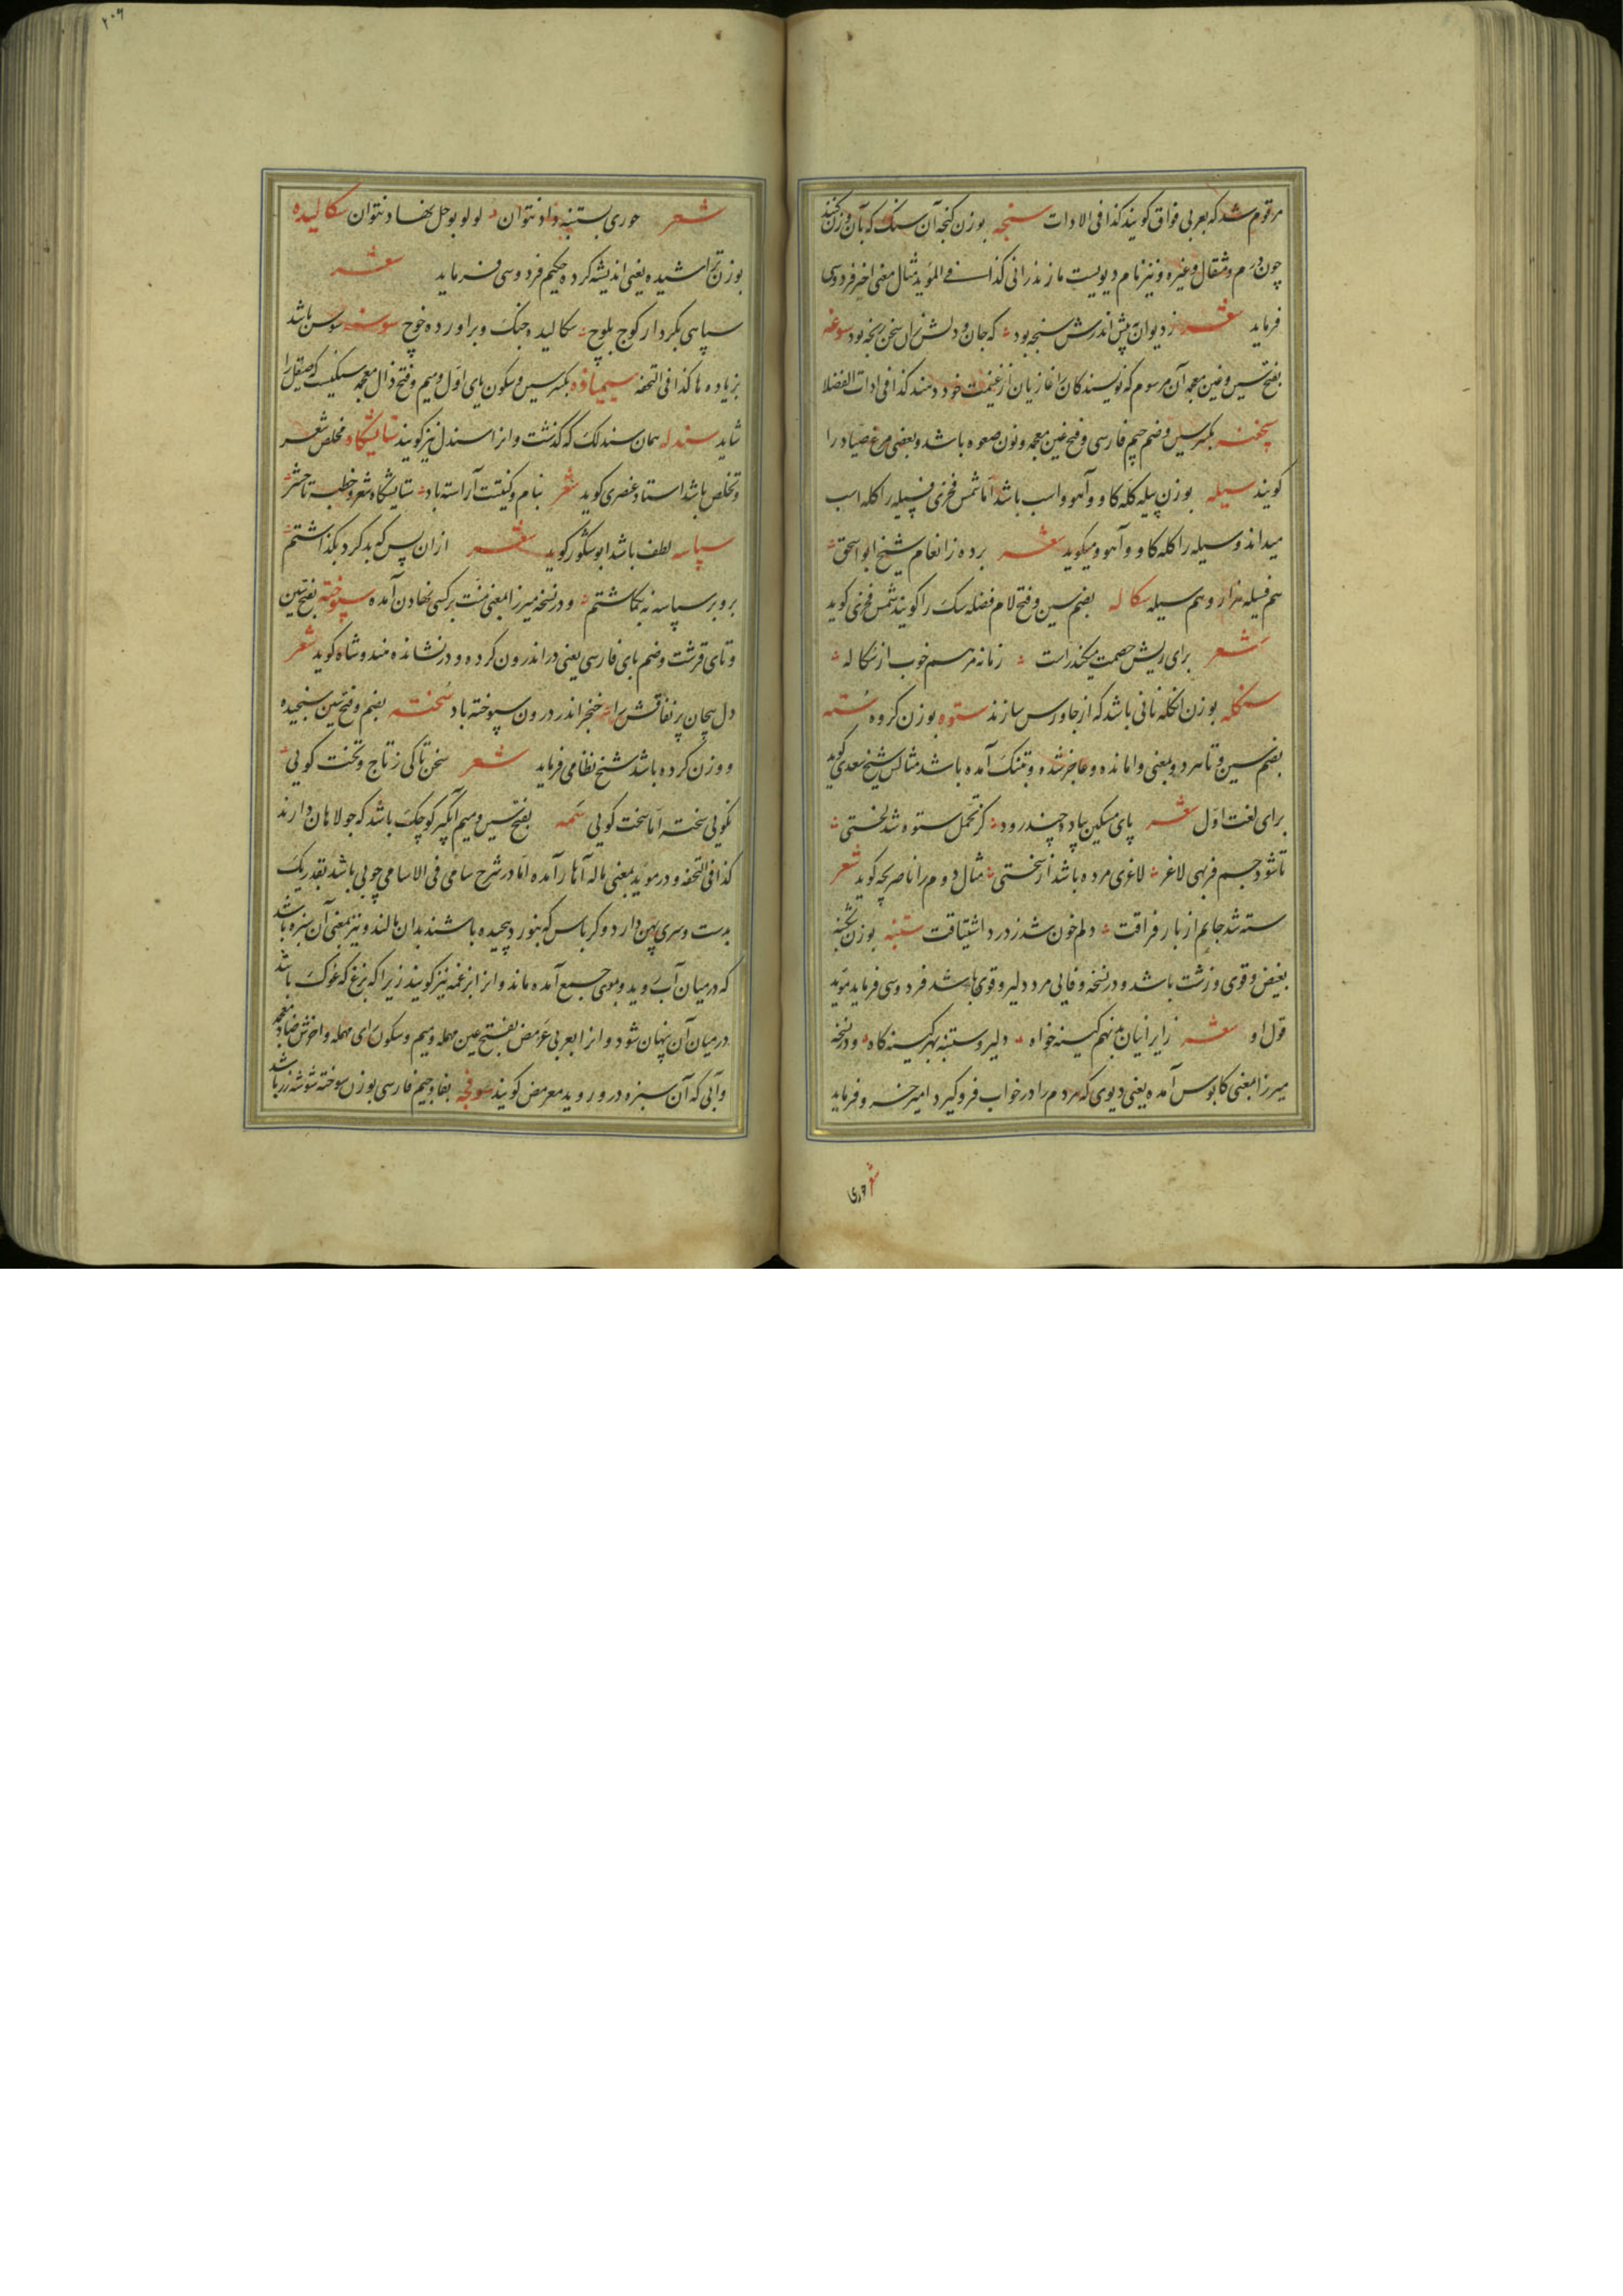 مرقوم شد که بعربی فواق کویند کذا فی الادات سنجه بوزن کنجه آن سنک که بآن وزن کنند
چون درم و مثقال و غیره و نیز نام دیویست مازندرانی کذا فے المؤید مثال معنی اخیر فردوسی
فرماید شعر ز دیوان به پیش اندرش سنجه بود که جان و دلش زان سخن رنجه بود سوغه
بفتح سین و غین معجمه آن مرسوم که نویسندکان را غازیان از غنیمت خود دهند کذا فی ادات الفضلا
بکسر سین و ضم جیم فارسی و فتح غین معجمه و نون صعوه باشد و بعضی مرغ صیاد را
کویند سیله بوزن پیله کله کاو و آهو و اسب باشد اما شمس فخری فسیله را کله اسب
میداند و سیله را کله کاو و آهو و میکوید شعر برده ز انعام شیخ ابو اسحق
هم فسیله هزار و هم سیله سکاله بضم سین و فتح لام فضله سک را کویند شمس فخری کوید
شعر برای ریش خصمت میکند راست زمانه مرهم خوب از سکاله
سنکله بوزن انکله نانی باشد که از جاورس سازند ستوه بوزن کروه سته
بضم سین و تا هر دو بمعنی وامانده و عاجز شده و بتنک آمده باشد مثالش شیخ سعدی کوید
برای لغت اول شعر پای مسکین پیاده چند رود کز تحمل ستوه شد بختی
تا شود جسم فربهی لاغر لاغری مرده باشد از سختی مثال دوم را ناصر بچه کوید شعر
سته شد جانم از بار فراقت دلم خون شد ز درد اشتیاقت ستنبه بوزن
بغیض و قوی و زشت باشد و در نسخه وفایی مرد دلیر و قوی باشد فردوسی فرماید موید
قول او شعر ز ایرانیان بد نهم کینه خواه دلیر و ستنبه بهر کینه کاه و در نسخه
میرزا بمعنی کابوس آمده یعنی دیوی که مردم را در خواب فرو کیرد امیر خسرو فرماید
شعر حوری
۲۰۶
شعر حوری بستنبه داد نتوان لولو بوحل نهاد نتوان سکالیده
بوزن تراشیده یعنی اندیشه کرده حکیم فردوسی فرماید شعر
سپاهی بکردار کوج و بلوج سکالیده جنک و براورده خوج سوسنه سوسن باشد
بزیاده ها کذا فی التحفه بکسر سین و سکون یای اول و میم و فتح ذال معجمه سنکیست که صیقل را
شاید سندله همان سندلک که کذشت و انرا سندل نیز کویند ستایشکاه مخلص شعر
و تخلص باشد استاد عنصری کوید شعر بنام و کنیتت آراسته باد ستایشکاه شعر و خطبه تا حشر
سپاسه لطف باشد ابو شکور کوید شعر ازان پس که بد کرد بکذاشتم
برو بر سپاسه نه بکماشتم و در نسخه میرزا بمعنی منت بر کسی نهادن آمده سپوخته بفتح سین
و تای قرشت و ضم بای فارسی یعنی دراندرون کرده و در نشانده هندوشاه کوید شعر
دل بیجان پر نفاقش را خنجر اندر درون سپوخته باد سخته بضم و فتح سین سنجیده
و وزن کرده باشد شیخ نظامی فرماید شعر سخن تا کی ز تاج و تخت کویی
نکویی سخته اما سخت کویی سمه بفتح سین و میم آبکیر کوچک باشد که جولاهان دارند
کذا فی التحفه و در موید بمعنی ماله آهار آمده اما در شرح سامی فی الاسامی چوبی باشد بقدر یک
بدست و سری پهن دارد و کرباس که بنورد پیچیده باشند بدان مالند و نیز بمعنی آن سبزه باشد
که در میان آب روید و بموی جمع آمده ماند و انرا بزغمه نیز کویند زیرا که بزغ که غوک باشد
در میان آن پنهان شود و انرا بعربی عرمض بفتح عین مهمله و میم و سکون رای مهمله و اخرش ضاد معجمه
و آبی که آن سبزه در و روید معرمض کویند سوفچه بفا و جیم فارسی بوزن سوخته شوشه زر باشد